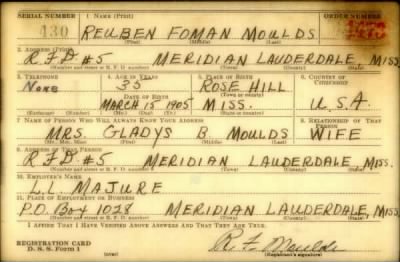 SERIAL NUMBER 1. NAME (Print) ORDER NUMBER
430 REUBEN FOMAN MOULDS
(First) (Middle) (Last)
2. ADDRESS (Print)
R.F.D. #5 MERIDIAN LAUDERDALE, MISS.
(Number and street or R. F. D. number) (Town) (County) (State)
3. TELEPHONE 4. AGE IN YEARS 5. PLACE OF BIRTH 6. COUNTRY OF CITIZENSHIP
NONE 35 ROSE HILL
DATE OF BIRTH (Town or county)
MARCH 15 1905 MISS. U.S.A.
(Exchange) (Number) (Mo.) (Day) (Yr.) (State or country)
7. NAME OF PERSON WHO WILL ALWAYS KNOW YOUR ADDRESS 8. RELATIONSHIP OF THAT PERSON
MRS. GLADYS B. MOULDS WIFE
(Mr., Mrs., Miss) (First) (Middle) (Last)
9. ADDRESS OF THAT PERSON
R.F.D. #5 MERIDIAN LAUDERDALE, MISS.
(Number and street or R. F. D. number) (Town) (County) (State)
10. EMPLOYER'S NAME
L.L. MAJURE
11. PLACE OF EMPLOYMENT OR BUSINESS
P.O. BOX 1028 MERIDIAN LAUDERDALE, MISS.
(Number and street or R. F. D. number) (Town) (County) (State)
I AFFIRM THAT I HAVE VERIFIED ABOVE ANSWERS AND THAT THEY ARE TRUE.
REGISTRATION CARD
D. S. S. Form 1 (over) R. F. Moulds
(Registrant's signature)